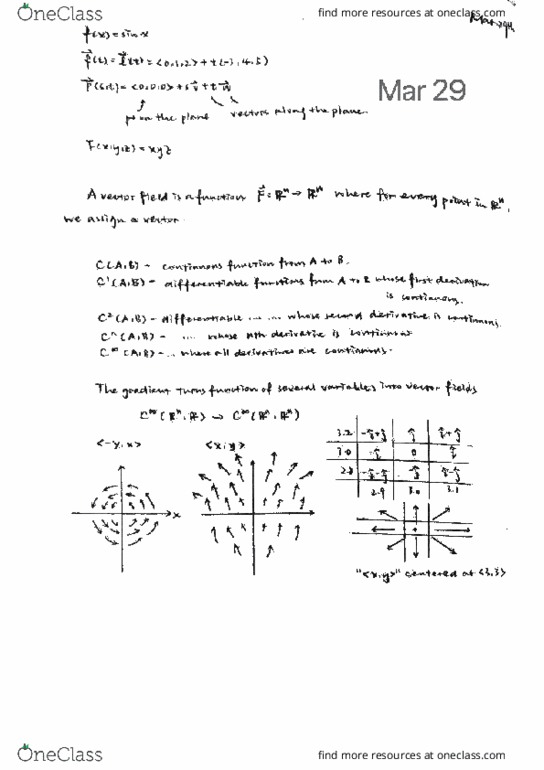 OneClass
find more resources at oneclass.com
f(x) = sin x
f(t) = l(t) = <0,1,2> + t<-3,4,5>
Mar 29
r(s,t) = <0,0,0> + s v + t w
pt on the plane
vectors along the plane.
F(x,y,z) = xyz
A vector field is a function F = ℝⁿ → ℝⁿ where for every point in ℝⁿ,
we assign a vector.
C(A,B) - continuous function from A to B.
C¹(A,B) - differentiable functions from A to B whose first derivative
is continuous.
C²(A,B) - differentiable ... ... whose second derivative is continuous.
Cⁿ(A,B) - .... whose nth derivative is continuous
C^∞(A,B) - ... where all derivatives are continuous.
The gradient turns function of several variables into vector fields
C^∞(ℝⁿ, ℝ) → C^∞(ℝⁿ, ℝⁿ)
<-y,x>
<x,y>
3.0
0
2.9 3.0 3.1
x
"<x,y>" centered at <3,3>
OneClass
find more resources at oneclass.com